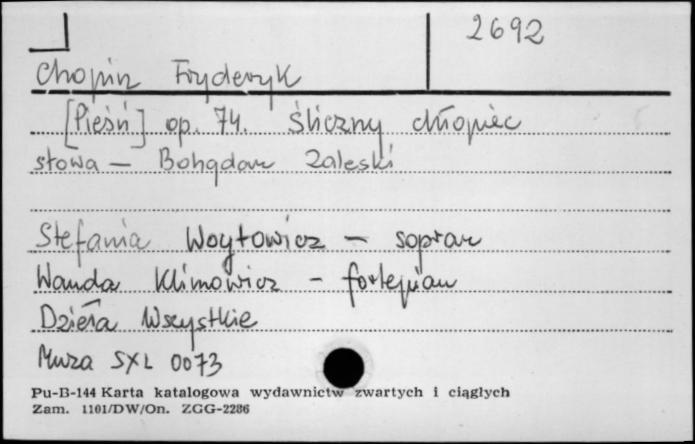 2692
Chopin Fryderyk
[Pieśń] op. 74. Śliczny chłopiec
słowa – Bohdan Zaleski
Stefania Woytowicz – sopran
Wanda Klimowicz – fortepian
Dzieła Wszystkie
Muza SXL 0073
Pu-B-144 Karta katalogowa wydawnictw zwartych i ciągłych
Zam. 1101/DW/On. ZGG-2286